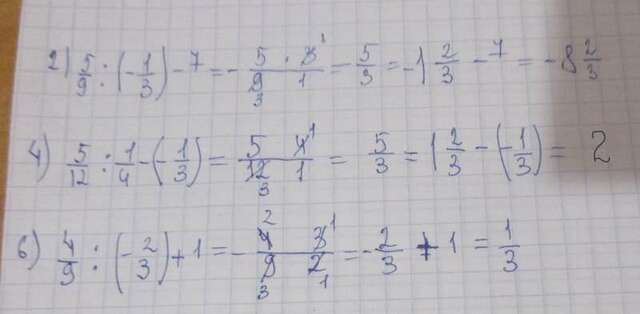 2) 5/9 : (-1/3) - 7 = - 5 · 3 1 / 9 3 1 = 5/3 = -1 2/3 - 7 = -8 2/3
4) 5/12 : 1/4 - (-1/3) = 5 4 1 / 12 3 1 = 5/3 = 1 2/3 - (-1/3) = 2
6) 4/9 : (-2/3) + 1 = - 2 4 3 1 / 9 3 2 1 = - 2/3 + 1 = 1/3